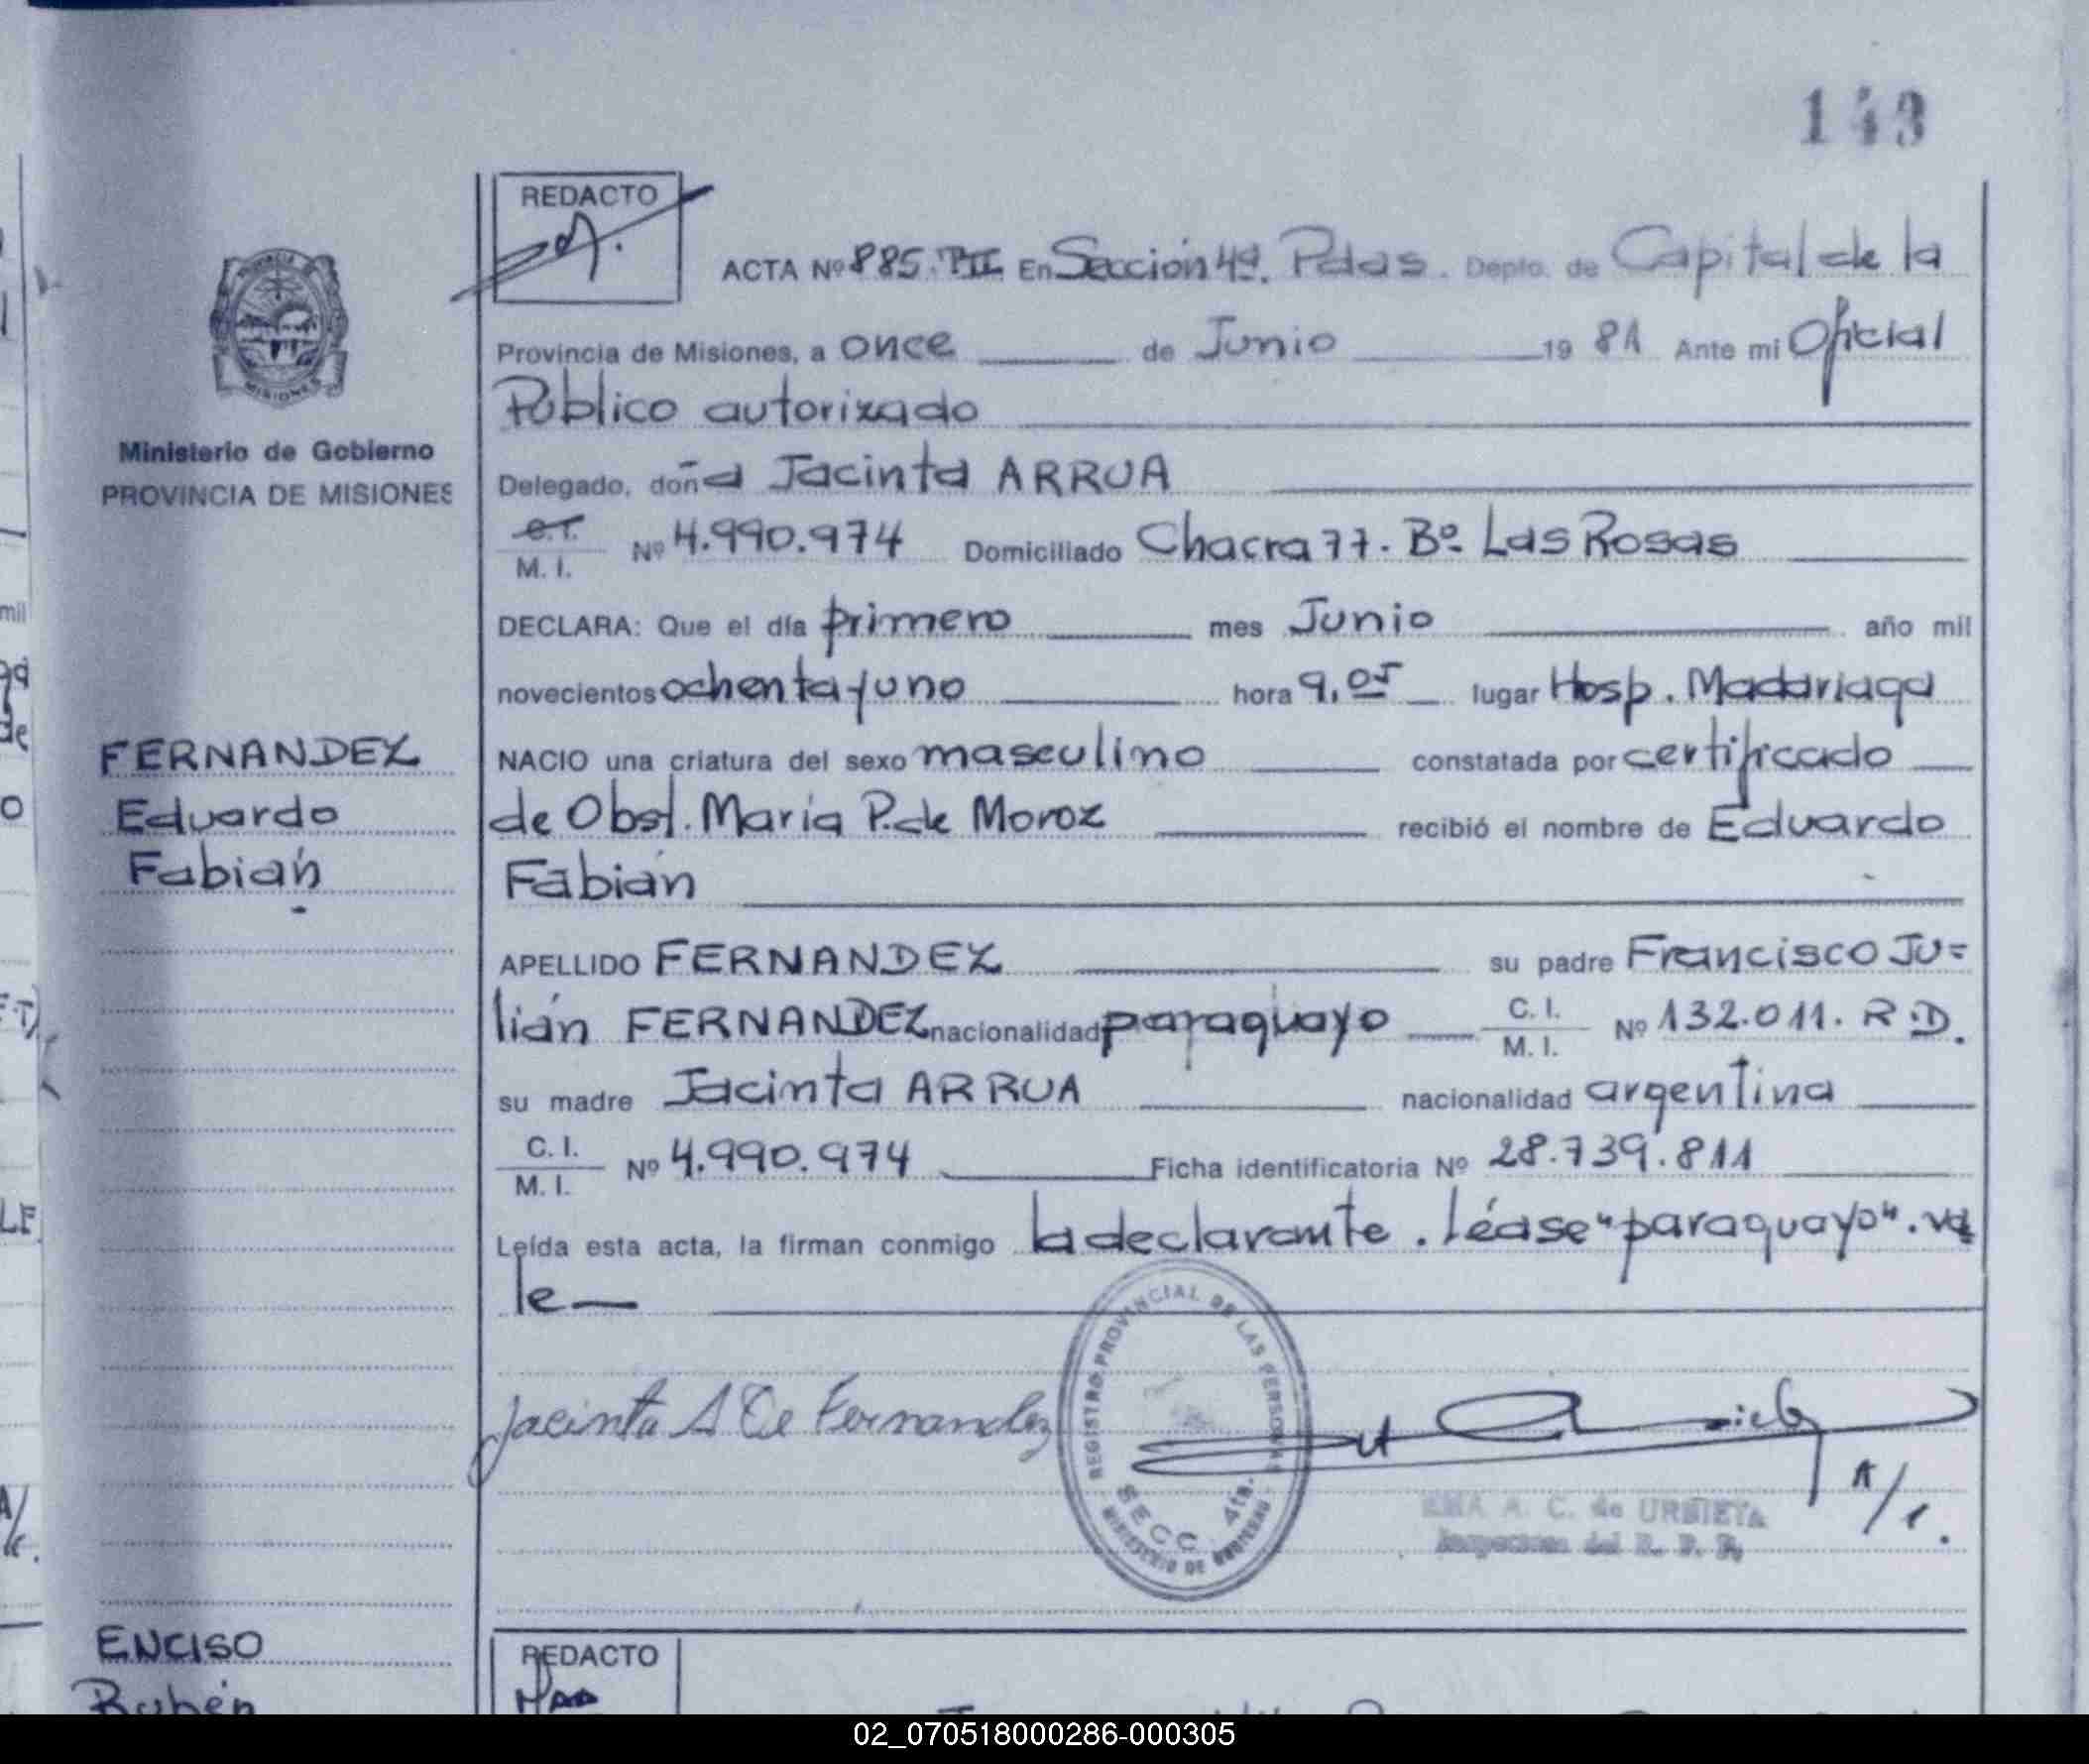 143
REDACTO
ACTA Nº 885. TII En Sección 4ª. Pdas. Depto. de Capital de la
Provincia de Misiones, a once de Junio 19 81 Ante mi Oficial
Público autorizado
Ministerio de Gobierno
PROVINCIA DE MISIONES
Delegado, doña Jacinta ARRUA
C.I.
M. I. Nº 4.990.974 Domiciliado Chacra 77. Bº. Las Rosas
DECLARA: Que el día primero mes Junio año mil
novecientos ochenta y uno hora 9,05 lugar Hosp. Madariaga
FERNANDEZ
Eduardo
Fabián
NACIO una criatura del sexo masculino constatada por certificado
de Obst. María P. de Moroz recibió el nombre de Eduardo
Fabián
APELLIDO FERNANDEZ su padre Francisco Ju=
lián FERNANDEZ nacionalidad paraguayo C. I.
M. I. Nº 132.011. R.D.
su madre Jacinta ARRUA nacionalidad argentina
C. I.
M. I. Nº 4.990.974 Ficha identificatoria Nº 28.739.811
Leída esta acta, la firman conmigo la declarante. Léase "paraguayo". va
le
Jacinta A de Fernandez
REGISTRO PROVINCIAL DE LAS PERSONAS
SECC. 4ta.
MINISTERIO DE GOBIERNO
A. C. de URBIETA
Inspectora del R. P. P.
ENCISO
Rubén
REDACTO
02_070518000286-000305